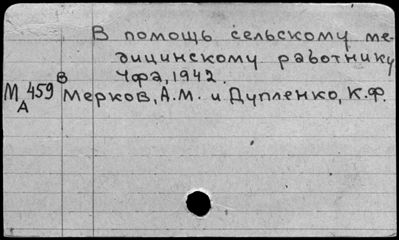 В помощь сельскому ме-
дицинскому работнику
Уфа, 1942.
М 459 В
А
Мерков, А.М. и Дупленко, К.Ф.